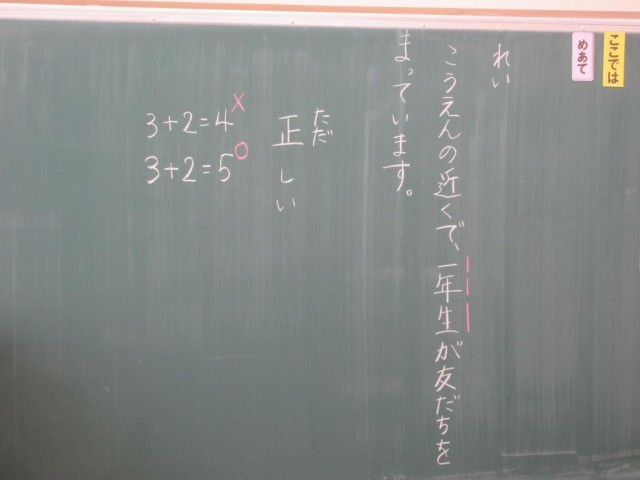 ここでは
めあて
れい
こうえんの近くで、一年生が友だちを
まっています。
ただ
正しい
3+2=4×
3+2=5○